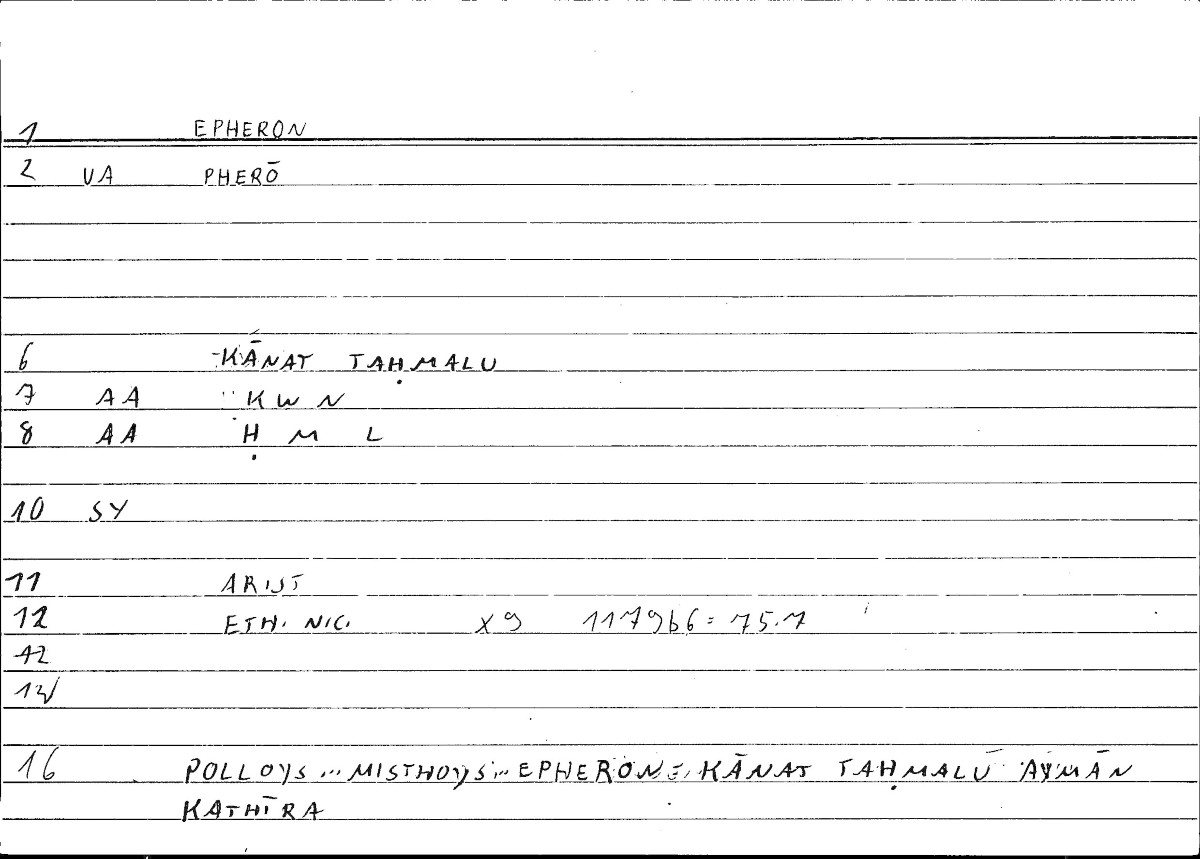 1 EPHERON
2 VA PHERŌ
6 KĀNAT TAḤMALU
7 AA KWN
8 AA Ḥ M L
10 SY
11 ARIST
12 ETH. NIC. X9 1179b6 = 75.7
12
16 POLLOYS ... MISTHOYS ... EPHERON = KĀNAT TAḤMALŪ AYMĀN
KATHĪRA